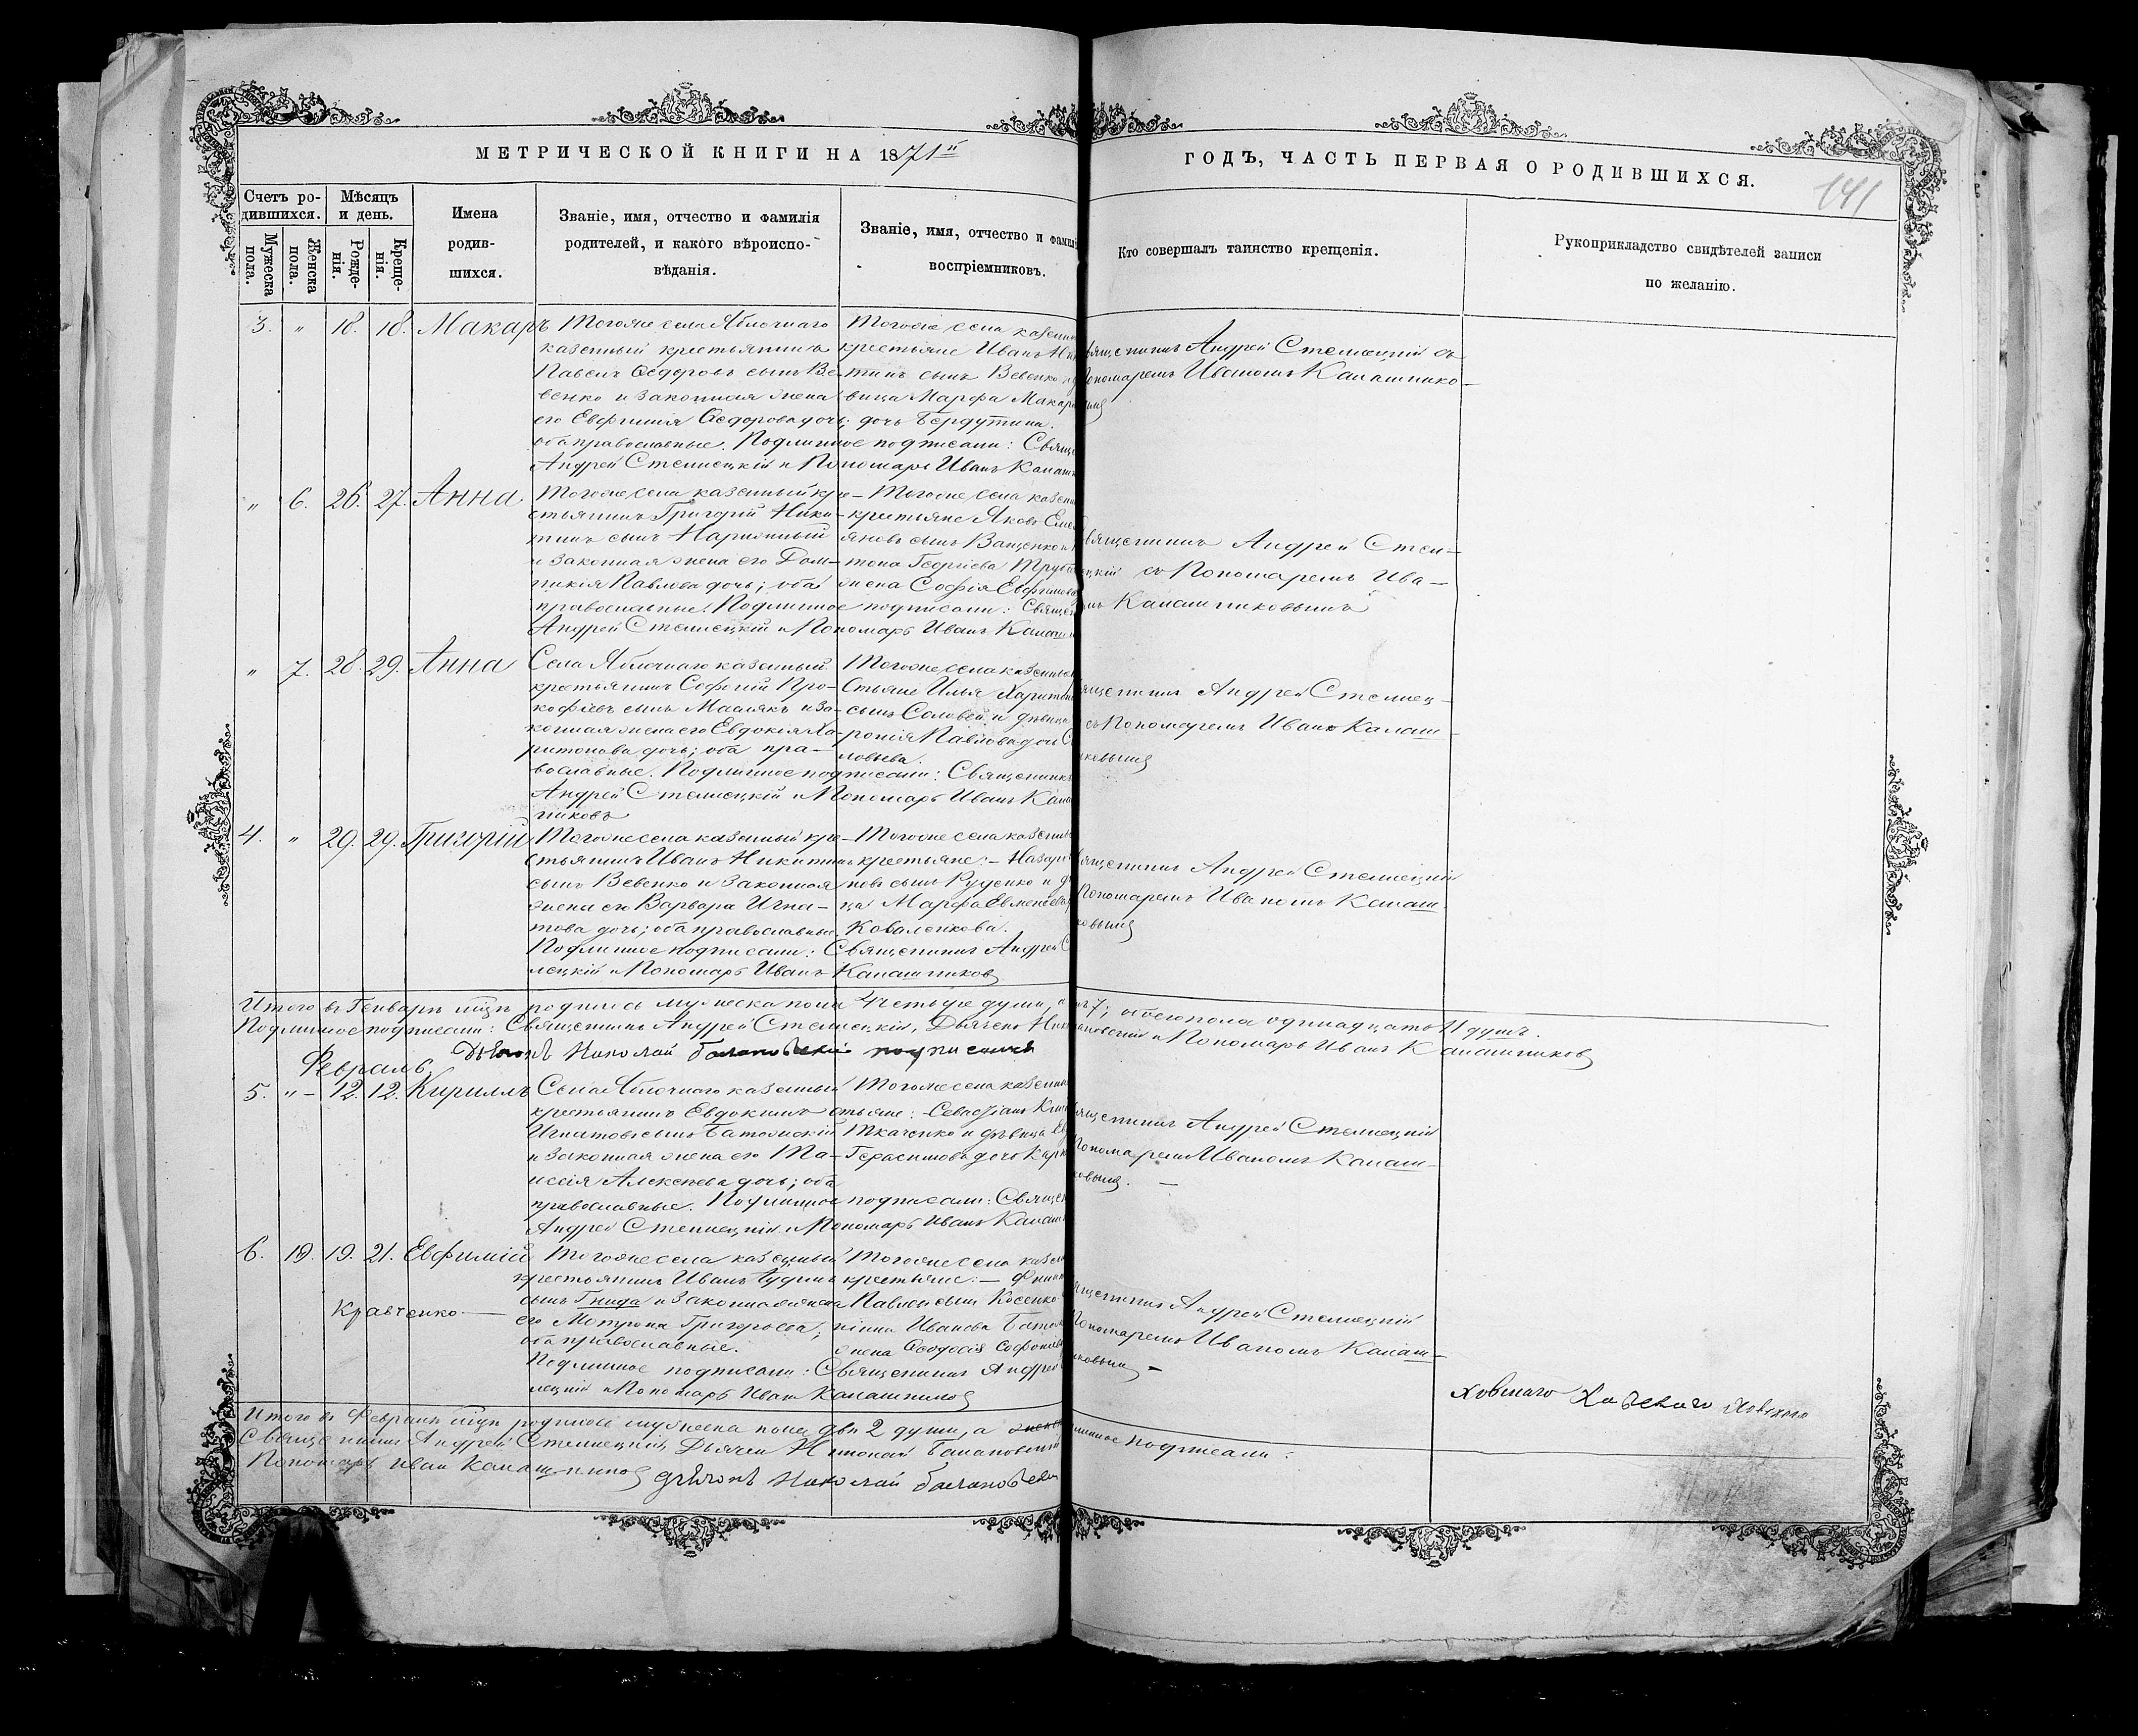 МЕТРИЧЕСКОЙ КНИГИ НА 1871й
ГОДЪ, ЧАСТЬ ПЕРВАЯ О РОДИВШИХСЯ.
141
Счетъ ро-
дившихся.
Мужеска
пола.
Женска
пола.
Мѣсяцъ
и день.
Рожде-
нія.
Креще-
нія.
Имена
родив-
шихся.
Званіе, имя, отчество и фамилія
родителей, и какого вѣроиспо-
вѣданія.
Званіе, имя, отчество и фамил
воспріемниковъ.
Кто совершалъ таинство крещенія.
Рукоприкладство свидѣтелей записи
по желанію.
3. " 18. 18. Макаръ
Тогоже села Яблочнаго
казенный крестьянинъ
Павелъ Ѳедоровъ сынъ Ве-
венко и законная жена
его Евфимія Ѳедорова дочь;
оба православные. Подлинное подписали: Свяще
Андрей Стеллецкій и Пономарь Иванъ Калаш
Тогоже села казенн
крестьяне Иванъ Ни
тинъ сынъ Вевенко и д
вица Марфа Макар
дочь Бердутина.
вященникъ Андрей Стеллецкій съ
Пономаремъ Иваномъ Калашнико-
" 6. 26. 27. Анна
Тогоже села казенный кре-
стьянинъ Григорій Ники-
тинъ сынъ Нарижный
и законная жена его Дом-
никія Павлова дочь; оба
православные. Подлинное подписали: Священ
Андрей Стеллецкій и Пономарь Иванъ Калаш
Тогоже села казенн
крестьяне Яковъ Еме
яновъ сынъ Ващенко и
тона Георгіева Труб
жена Софія Евфимов
вященникъ Андрей Стел-
ецкій съ Пономаремъ Ива-
номъ Калашниковымъ
" 7. 28. 29. Анна
Села Яблочнаго казенный
крестьянинъ Софоній Про-
кофіевъ сынъ Маслякъ и за-
конная жена его Евдокія Ха-
ритонова дочь; оба пра-
вославные. Подлинное подписали: Священникъ
Андрей Стеллецкій и Пономарь Иванъ Кала
никовъ
Тогоже села казенны
стьяне Илья Харитон
сынъ Соловей и дѣвица
ронія Павлова дочь С
ловьева.
ященникъ Андрей Стеллец-
съ Пономаремъ Иваномъ Калаш-
иковымъ
4. " 29. 29. Григорій
Тогоже села казенный кре-
стьянинъ Иванъ Никитинъ
сынъ Вевенко и законная
жена его Варвара Игна-
това дочь; оба православные
Подлинное подписали: Священникъ Андрей С
лецкій и Пономарь Иванъ Калашниковъ
Тогоже села казенны
крестьяне: – Назар
новъ сынъ Руденко и дѣ
ца Марфа Евменіева
Коваленкова.
вященникъ Андрей Стеллецкій
Пономаремъ Иваномъ Калаш-
ковымъ
Итого въ Генварѣ мцѣ родилось мужеска пола 4 четыре души, а 7, обоего пола одинадцать 11 душъ.
Подлинное подписали: Священникъ Андрей Стеллецкій, Дьячекъ Ник ановскій и Пономарь Иванъ Калашниковъ
Дьячокъ Николай Балановскій подписался
Февраль
5. " – 12. 12. Кириллъ
Села Яблочнаго казенный
крестьянинъ Евдокимъ
Игнатовъ сынъ Батомскій
и законная жена его Та-
исія Алексѣева дочь; оба
православные. Подлинное подписали: Священ
Андрей Стеллецкій и Пономарь Иванъ Калаш
Тогоже села казенны
стьяне: Севастіанъ
Ткаченко и дѣвица Ев
Герасимова дочь Кар
ященникъ Андрей Стеллецкій
Пономаремъ Иваномъ Калаш-
ковымъ. –
6. 19. 19. 21. Евфимій
Кравченко
Тогоже села казенный
крестьянинъ Иванъ
сынъ Гнида и законная жена
его Мотрона Григорьева;
оба православные.
Подлинное подписали: Священникъ Андрей
лецкій и Пономарь Иванъ Калашниковъ
Тогоже села казен
крестьяне: – Фили
Павловъ сынъ Косенко
Иванова
жена Ѳеодосія Софоніева
ященникъ Андрей Стеллецкій
Пономаремъ Иваномъ Калаш-
иковымъ –
Итого въ Февралѣ мцѣ родилось мужеска пола двѣ 2 души, а женс линное подписали:
Священникъ Андрей Стеллецкій, Дьячекъ Николай Балановскій
Пономарь Иванъ Калашниковъ Дьячокъ Николай Балановскій